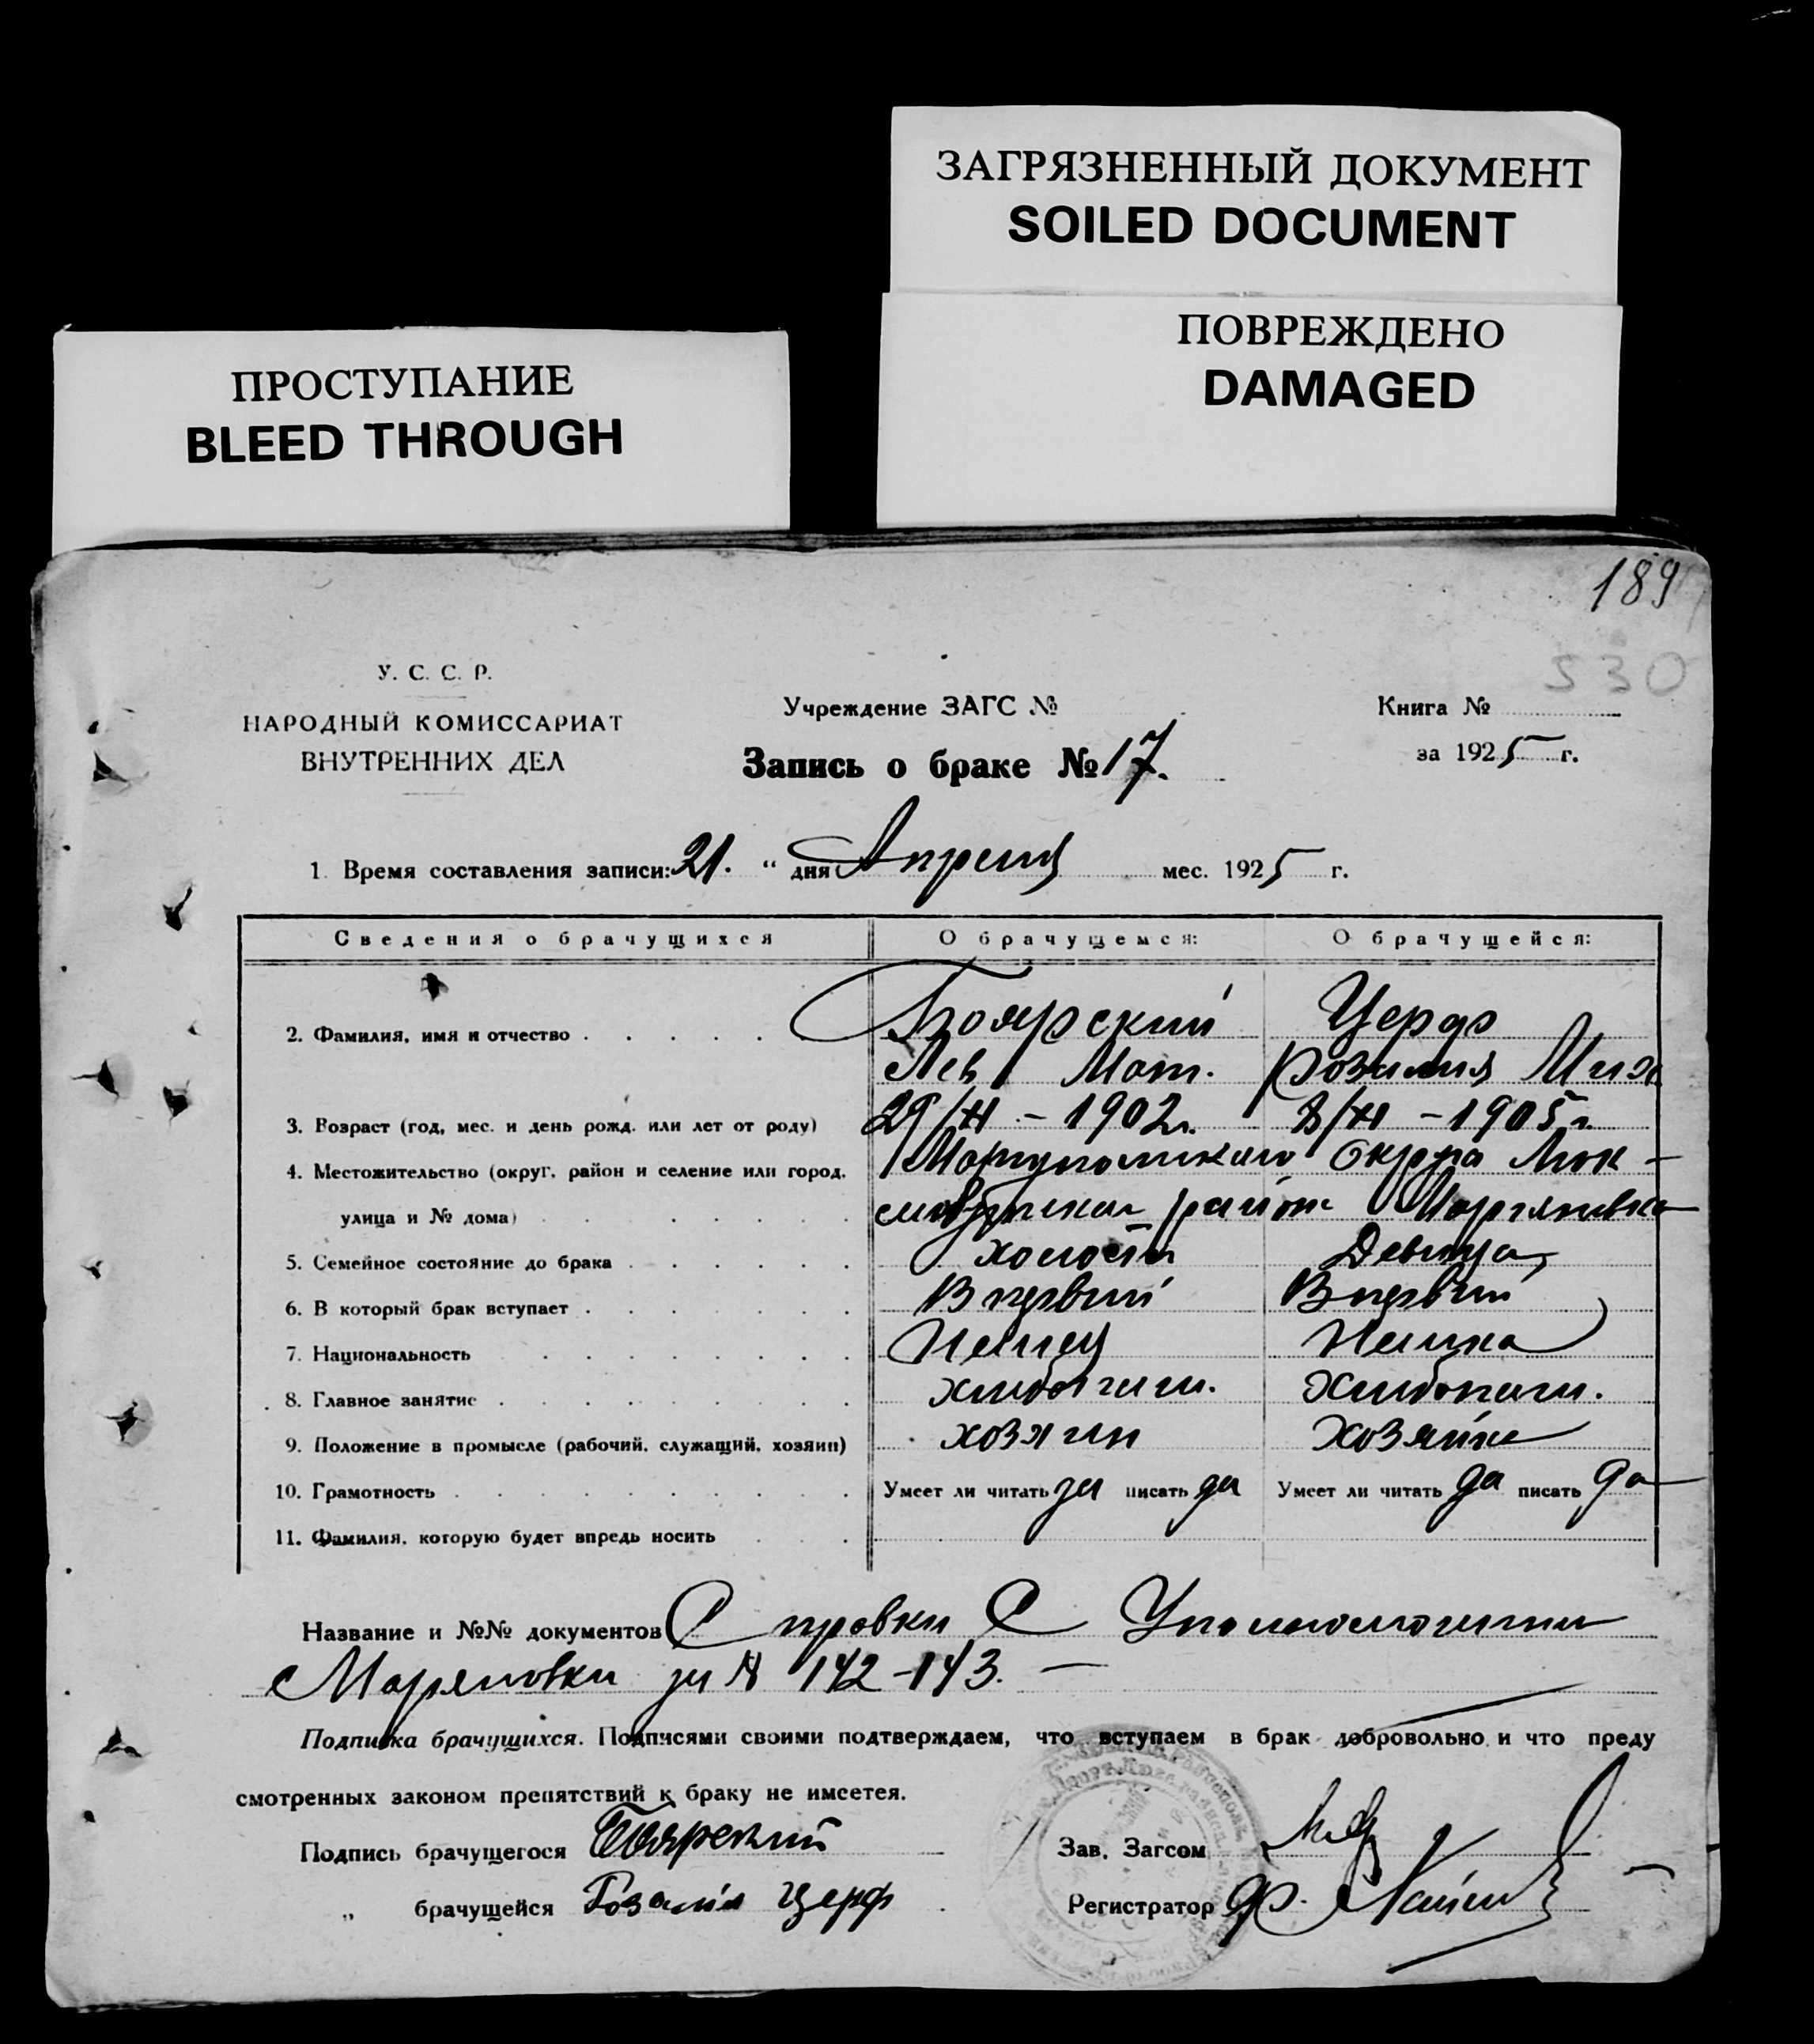 ЗАГРЯЗНЕННЫЙ ДОКУМЕНТ
SOILED DOCUMENT
ПОВРЕЖДЕНО
DAMAGED
ПРОСТУПАНИЕ
BLEED THROUGH
189
530
У. С. С. Р.
НАРОДНЫЙ КОМИССАРИАТ
ВНУТРЕННИХ ДЕЛ
Учреждение ЗАГС №
Запись о браке № 17.
Книга №
за 1925 г.
1. Время составления записи: 21. " дня Апреля мес. 1925 г.
Сведения о брачущихся О брачущемся: О брачущейся:
2. Фамилия, имя и отчество Боярский Церф
Лев Мат. Розалия Мих.
3. Возраст (год, мес. и день рожд. или лет от роду) 29/XI - 1902 г. 8/XI - 1905 г.
4. Местожительство (округ, район и селение или город, Мариупольского Округа Люк-
улица и № дома) район Марьяновка
5. Семейное состояние до брака холост Девица
6. В который брак вступает В первый В первый
7. Национальность Немец Немка
8. Главное занятие хлебопаш. Хлебопаш.
9. Положение в промысле (рабочий, служащий, хозяин) хозяин Хозяйка
10. Грамотность Умеет ли читать да писать да Умеет ли читать да писать да
11. Фамилия, которую будет впредь носить
Название и №№ документов Справки С Уполномоченного
Маряновки за № 142-143. —
Подписка брачущихся. Подписями своими подтверждаем, что вступаем в брак добровольно и что преду
смотренных законом препятствий к браку не имеется.
Подпись брачущегося Боярский Зав. Загсом
„ брачущейся Розалія Церф Регистратор